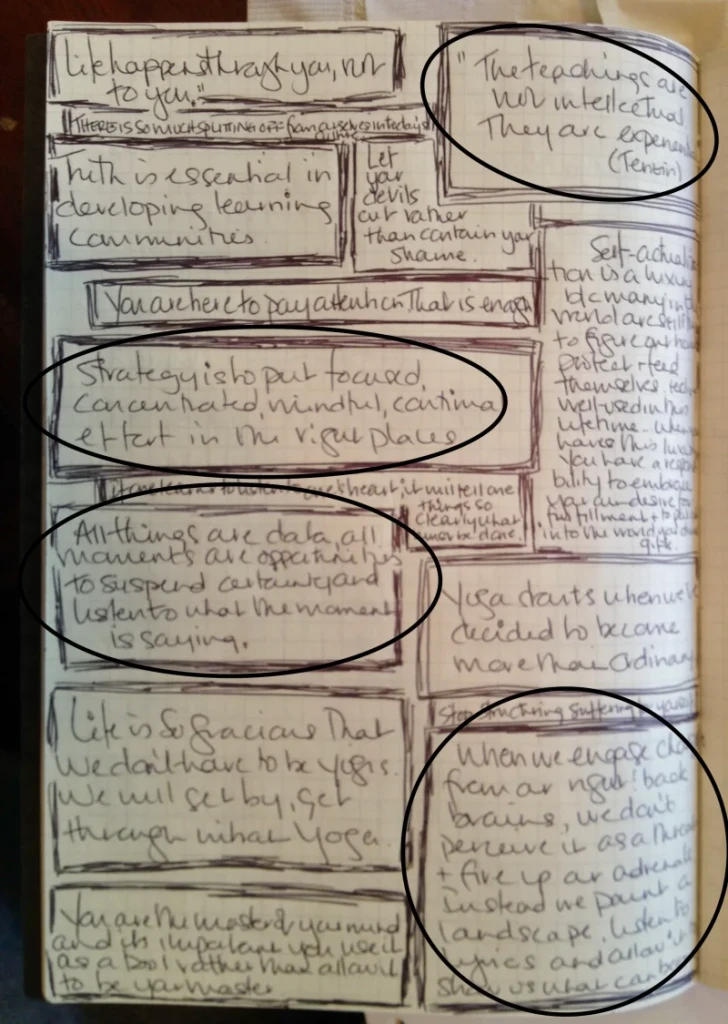 Life happens through you, not
to you."
"The teachings are
not intellectual
They are
(Tenzin)
THERE IS SO MUCH SPLITTING OFF from ourselves in today's
Truth is essential in
developing learning
communities.
Let
your
devils
out rather
than contain your
shame.
Self-actualiza
tion is a luxury
b/c many in the
world are still
to figure out how
protect + feed
themselves.
well-used in this
lifetime.
have this luxury
you have a
bility to embrace
your desire for
fulfillment + to
into the world your
gifts.
You are here to pay attention That is enough
Strategy is to put focused,
concentrated, mindful,
effort in the right places
if one learns to listen to one's heart, it will tell one
things so
clearly what
must be done.
All things are data, all
moments are opportunities
to suspend certainty and
listen to what the moment
is saying.
Yoga starts when we've
decided to become
more than ordinary
Life is so gracious That
we don't have to be yogis.
We will get by, get
through without Yoga.
Stop structuring suffering
When we engage
from our right back
brains, we don't
perceive it as a threat
+ fire up our
Instead we paint a
landscape, listen to
lyrics and allow it
show us what can be
You are the master of your mind
and its important you use it
as a tool rather than allow it
to be your master